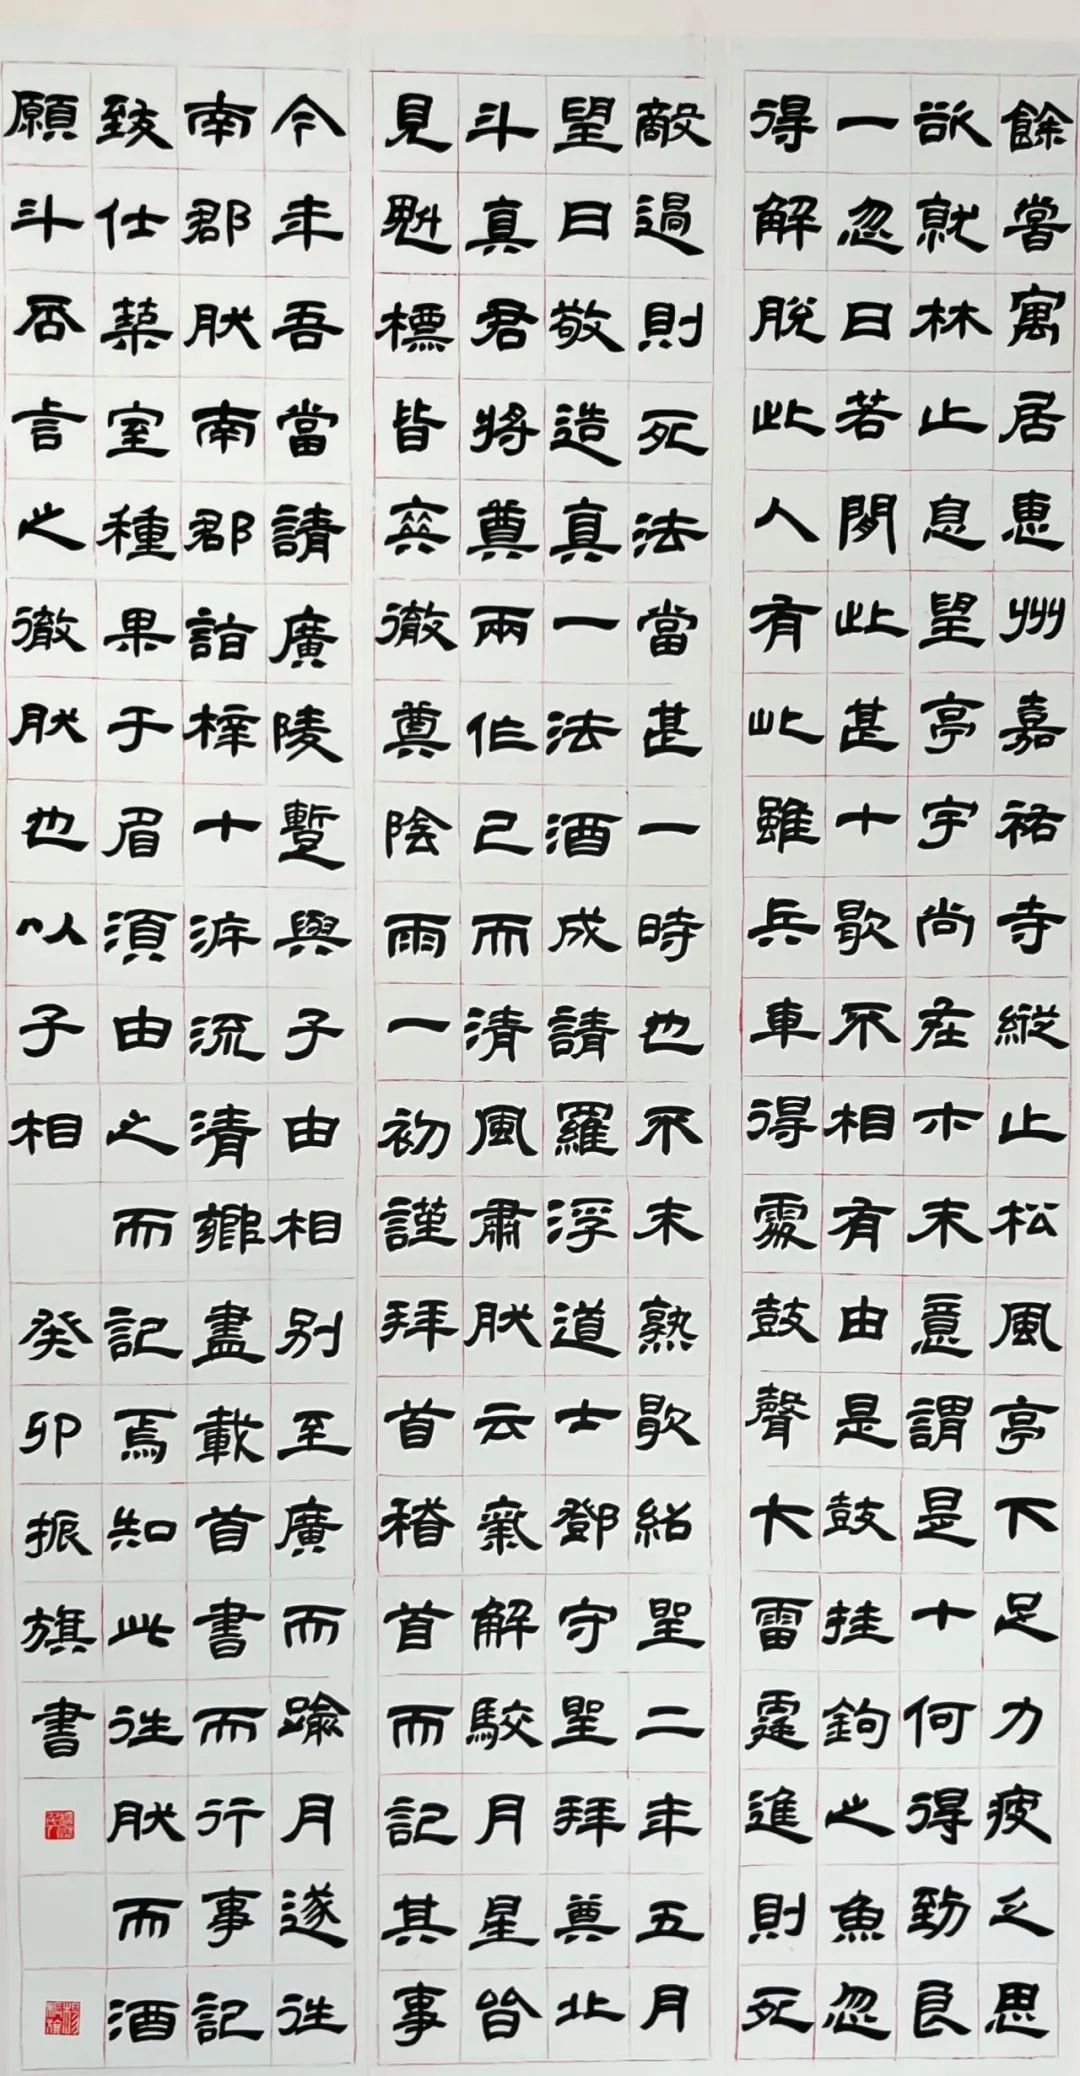 餘嘗寓居惠州嘉祐寺縱止松風亭下足力疲乏思
欲就林止息望亭宇尚在木末意謂是十何得到良
一忽日若閒此甚十歇不相有由是鼓挂鉤之魚忽
得解脫此人有此雖兵車得處鼓聲大雷霆進則死
敵過則死法當甚一時也不末熟歇紹聖二年五月
望日敬造真一法酒成請羅浮道士鄧守聖拜奠北
斗真君將奠兩作己而清風肅肰云氣解駮月星皆
見魁標皆爽徹奠陰雨一初謹拜首稽首而記其事
今年吾當請廣陵暫與子由相別至廣而踰月遂往
南郡肰南郡詣梓十泝流清鄉盡載首書而行事記
致仕築室種果于眉須由之而記焉知此往肰而酒
願斗否言之徹肰也以子相
癸卯振旗書